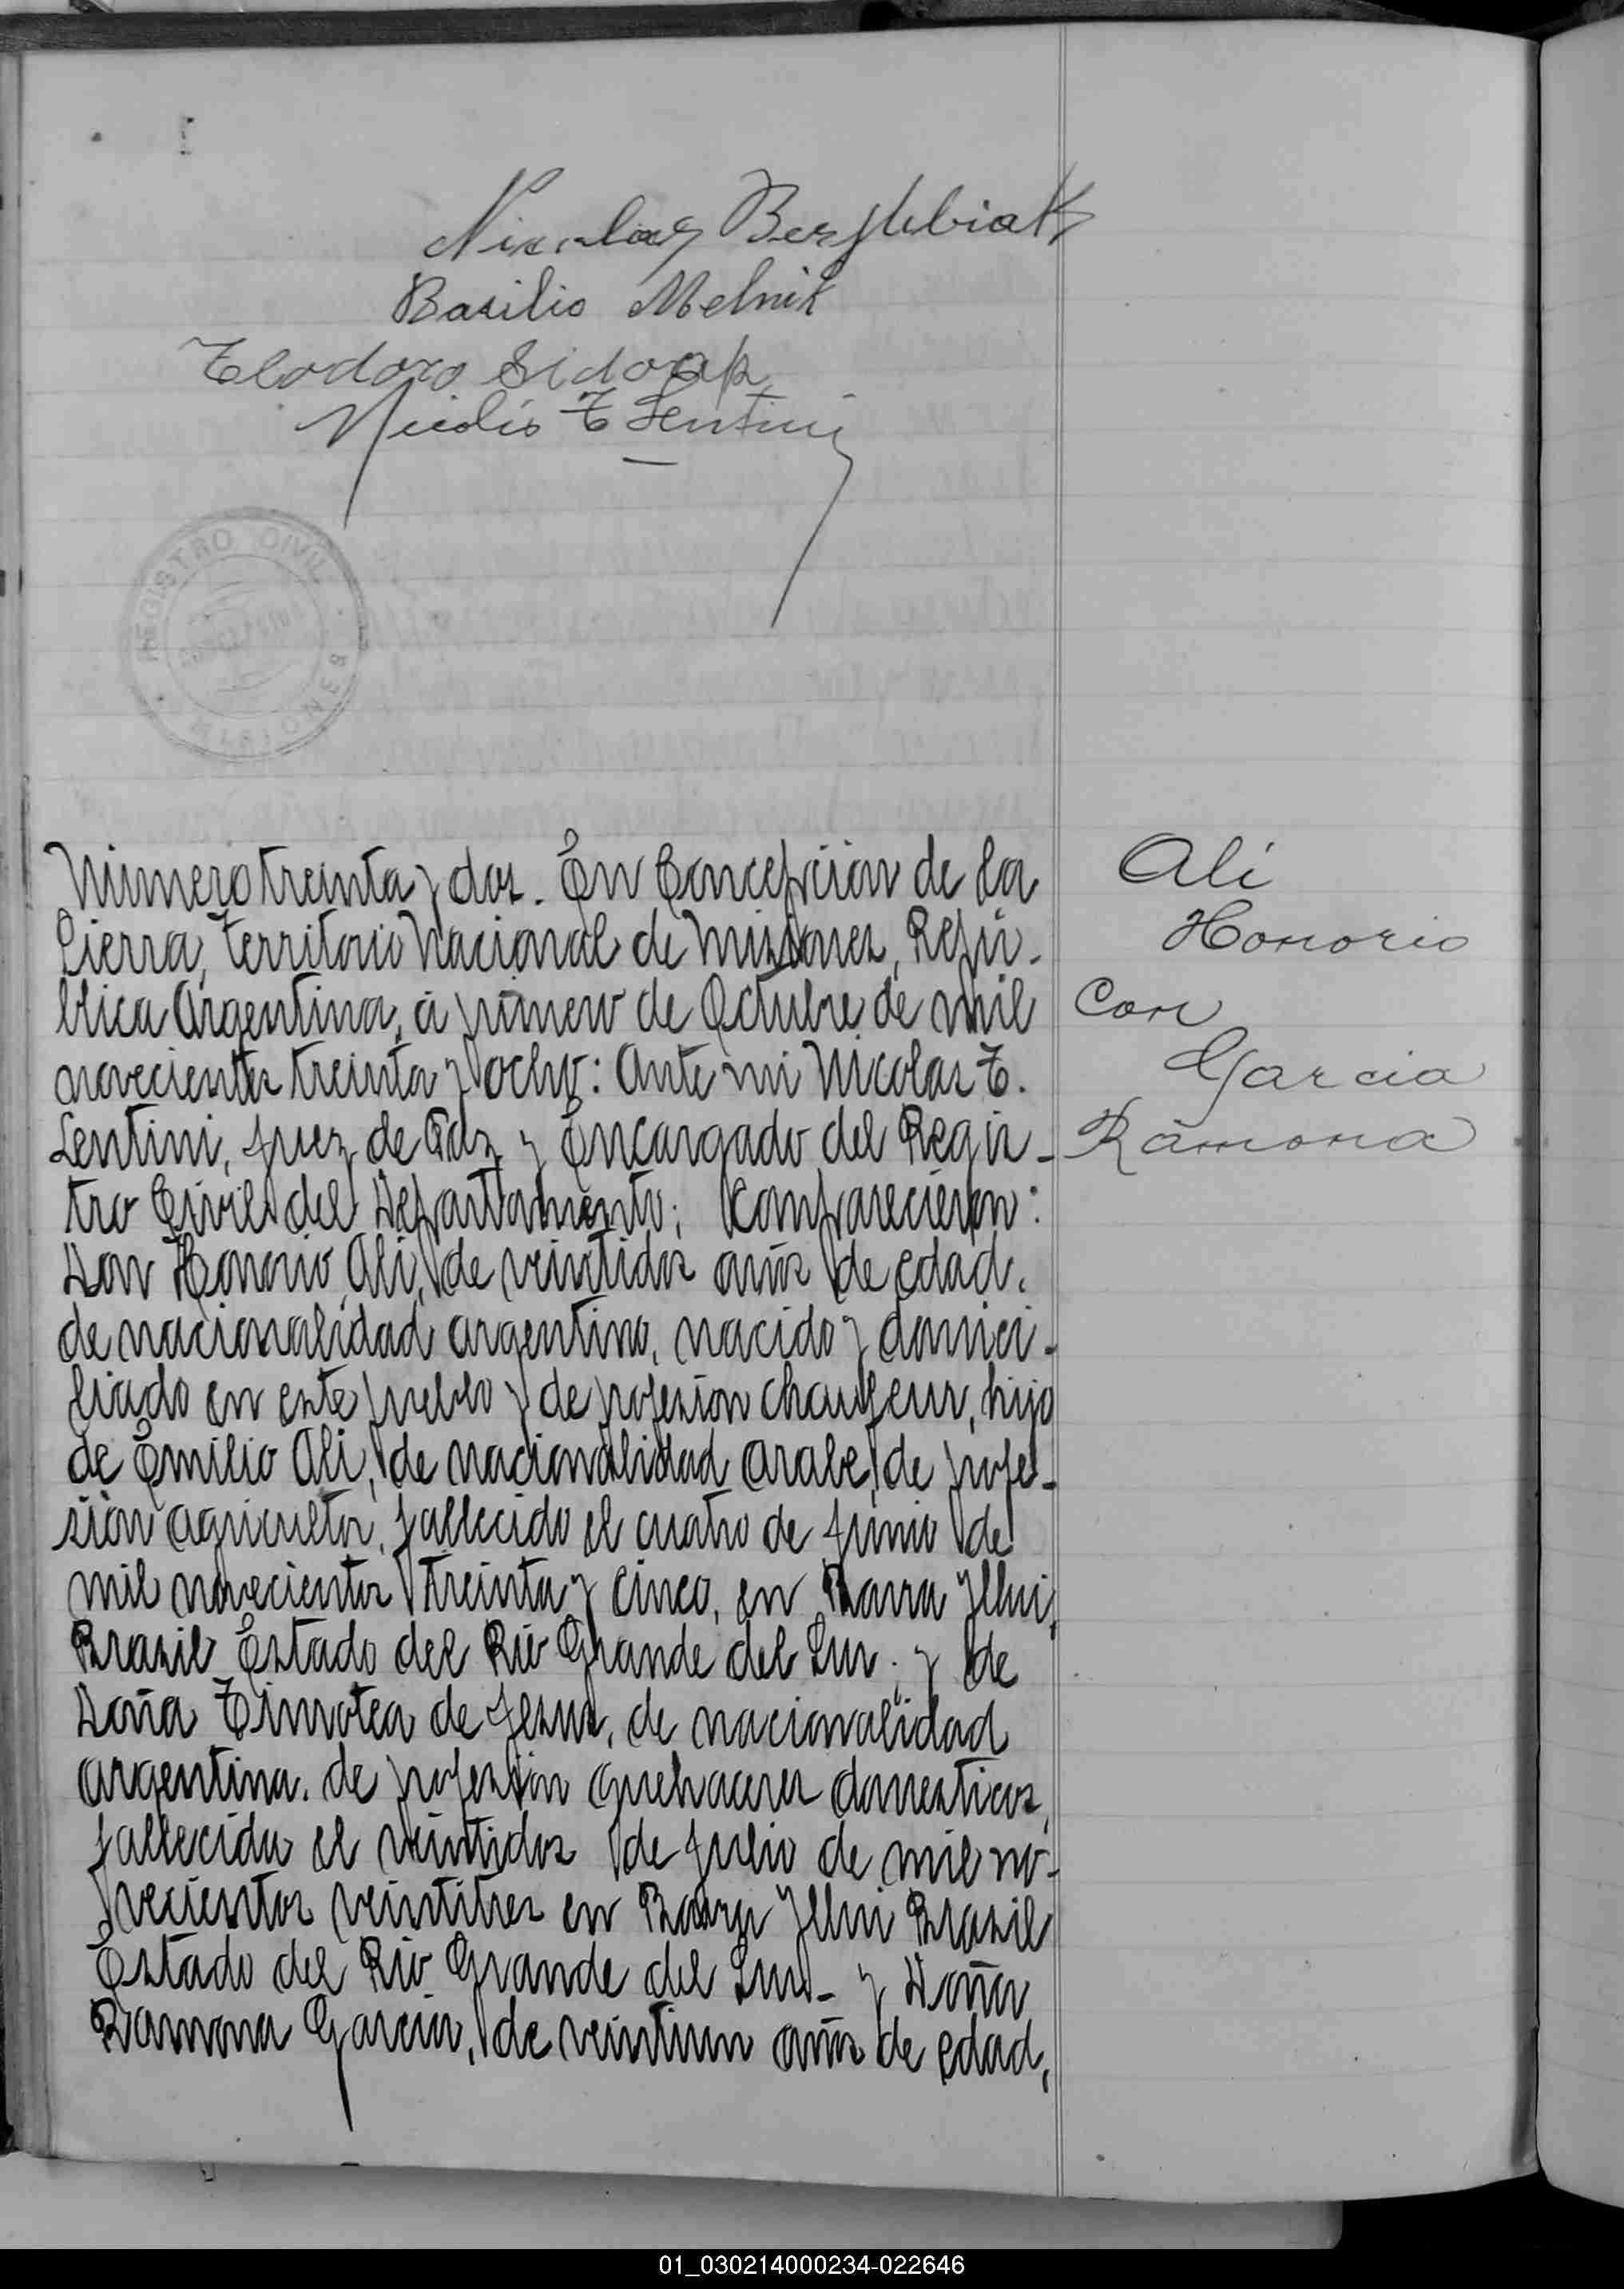 Nicolas
Basilio Melnik
Teodoro Sidorak
Nicolás T Lentini
REGISTRO CIVIL
MISIONES
Número treinta y dos. En Concepción de la
Sierra, Territorio Nacional de Misiones, Repú-
blica Argentina, á primero de Octubre de mil
novecientos treinta y ocho: Ante mi Nicolas T.
Lentini, Juez de Paz y Encargado del Regis-
tro Civil del Departamento; Comparecieron:
Don Honorio Ali, de veintidos años de edad,
de nacionalidad argentino, nacido y domici-
liado en este pueblo y de profesion chaufeur, hijo
de Emilio Ali, de nacionalidad arabe, de profe-
sión agricultor, fallecido el cuatro de Junio de
mil novecientos treinta y cinco, en Barra Yjui,
Brasil Estado del Rio Grande del Sur. y de
Doña Timotea de Jesus, de nacionalidad
argentina. de profesión quehaceres domesticos,
fallecida el veintidos de Julio de mil no-
vecientos veintitres en Barra Yjui Brasil
Estado del Rio Grande del Sur- y Doña
Ramona Garcia, de veintiun años de edad,
Ali
Honorio
Con
Garcia
Ramona
01_030214000234-022646